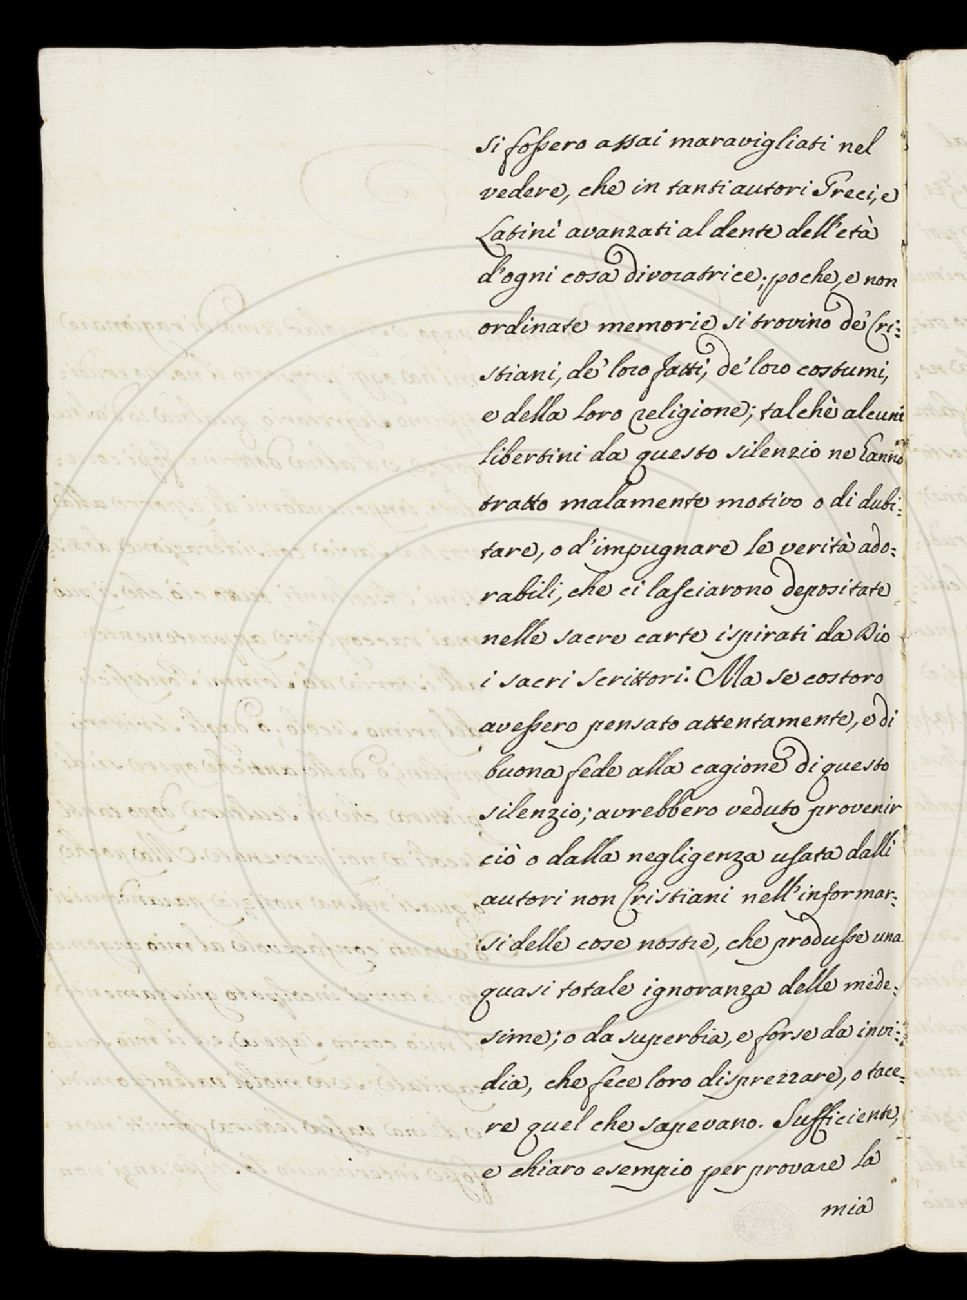 si fossero assai maravigliati nel
vedere, che in tanti autori Greci, e
Latini avanzati al dente dell'età
d'ogni cosa divoratrice; poche, e non
ordinate memorie si trovino de' Cri:
stiani, de' loro fatti, de' loro costumi,
e della loro religione; talchè alcuni
libertini da questo silenzio ne hanno
tratto malamente motivo o di dubi:
tare, o d'impugnare le verità ado:
rabili, che ci lasciarono depositate
nelle sacre carte ispirati da Dio
i sacri scrittori. Ma se costoro
avessero pensato attentamente, e di
buona fede alla cagione di questo
silenzio; avrebbero veduto provenir
ciò o dalla negligenza usata dalli
autori non Cristiani nell'informar:
si delle cose nostre, che produsse una
quasi totale ignoranza delle mede:
sime; o da superbia, e forse da invi:
dia, che fece loro disprezzare, o tace:
re quel che sapevano. Sufficiente,
e chiaro esempio per provare la
mia